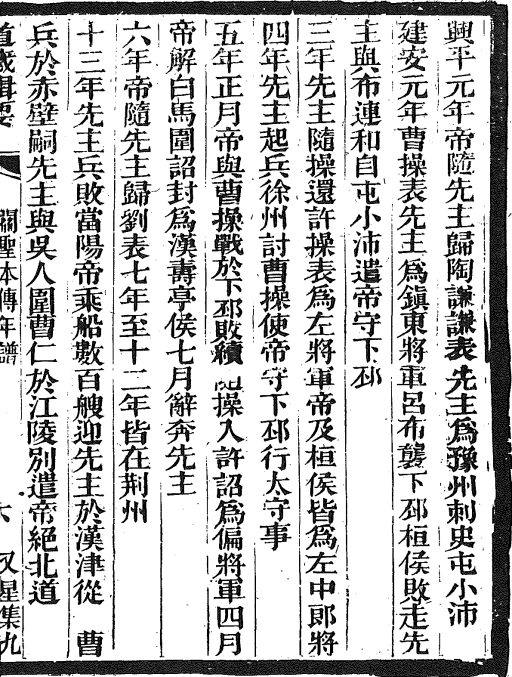 興平元年帝隨先主歸陶謙謙表先主爲豫州刺史屯小沛
建安元年曹操表先主爲鎭東將軍呂布襲下邳桓侯敗走先
主與布連和自屯小沛遣帝守下邳
三年先主隨操還許操表爲左將軍帝及桓侯皆爲左中郎將
四年先主起兵徐州討曹操使帝守下邳行太守事
五年正月帝與曹操戰於下邳敗績隨操入許詔爲偏將軍四月
帝解白馬圍詔封爲漢壽亭侯七月辭奔先主
六年帝隨先主歸劉表七年至十二年皆在荆州
十三年先主兵敗當陽帝乘船數百艘迎先主於漢津從 曹
兵於赤壁嗣先主與吳人圍曹仁於江陵別遣帝絕北道
道藏輯要 關聖本傳年譜 六 又星集九